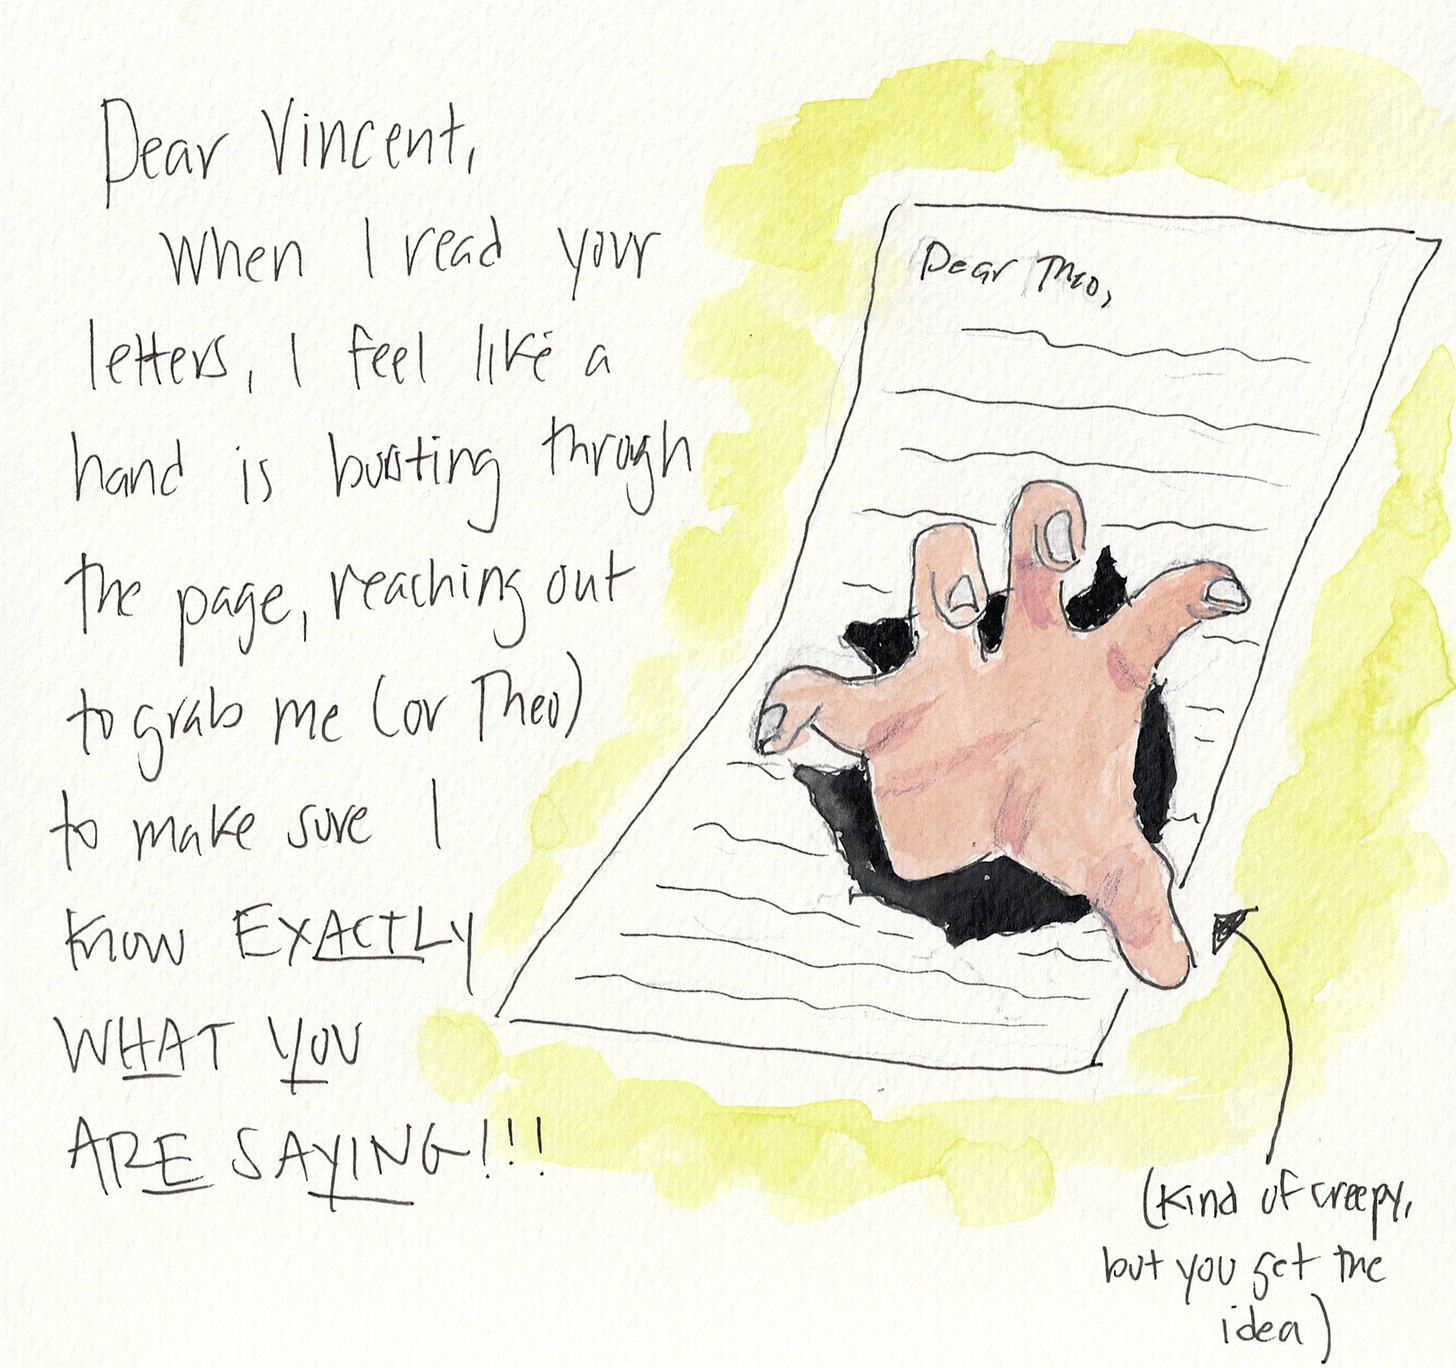 Dear Vincent,
When I read your
letters, I feel like a
hand is bursting through
the page, reaching out
to grab me (or Theo)
to make sure I
know EXACTLY
WHAT YOU
ARE SAYING!!!
Dear Theo,
(kind of creepy,
but you get the
idea)